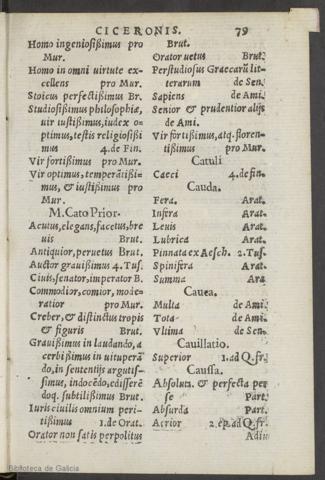 CICERONIS. 79
Homo ingeniosißimus pro
Mur.
Homo in omni uirtute ex-
cellens pro Mur.
Stoicus perfectißimus Br.
Studiosißimus philosophiæ,
uir iustißimus, iudex o-
ptimus, testis religiosißi
mus 4. de Fin.
Vir fortißimus pro Mur.
Vir optimus, temperãtißi-
mus, & iustißimus pro
Mur.
M. Cato Prior.
Acutus, elegans, facetus, bre
uis Brut.
Antiquior, peruetus Brut.
Auctor grauißimus 4. Tus.
Ciuis, senator, imperator B.
Commodior, comior, mode-
ratior pro Mur.
Creber, & distinctus tropis
& figuris Brut.
Grauißimus in laudando, a
cerbißimus in uituperã
do, in sententijs argutis-
simus, indocẽdo, edisserẽ
doq. subtilißimus Brut.
Iuris ciuilis omnium peri-
tißimus 1. de Orat.
Orator non satis perpolitus
Brut.
Orator uetus Brut.
Perstudiosus Graecarũ lit-
terarum de Sen.
Sapiens de Ami.
Senior & prudentior alijs
de Ami.
Vir fortißimus, atq. floren-
tißimus pro Mur.
Catuli
Caeci 4. de fin.
Cauda.
Fera. Arat.
Infera Arat.
Leuis Arat.
Lubrica Arat.
Pinnata ex Aesch. 2. Tus.
Spinifera Arat.
Summa Ara
Cauea.
Multa de Ami.
Tota de Ami.
Vltima de Sen.
Cauillatio.
Superior 1. ad Q. fr.
Caussa.
Absoluta & perfecta per
se Part.
Absurda Part.
Acrior 2. ep. ad Q. fr.
Adiu
Biblioteca de Galicia